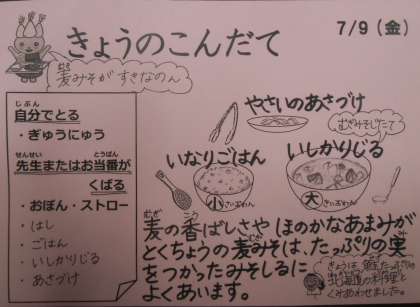 きょうのこんだて
7/9(金)
麦みそがすきなのん
じぶん
自分でとる
・ぎゅうにゅう
せんせい とうばん
先生またはお当番が
くばる
・おぼん・ストロー
・はし
・ごはん
・いしかりじる
・あさづけ
やさいのあさづけ
むぎみそじたて
いなりごはん
いしかりじる
小
さいおわん
大
きいおわん
むぎ こう
麦の香ばしさや ほのかなあまみが
とくちょうの麦みそは、たっぷりの実
をつかったみそしるに
よくあいます。
きょうは、鮭たっぷりの
北海道の料理と
くみあわせました。